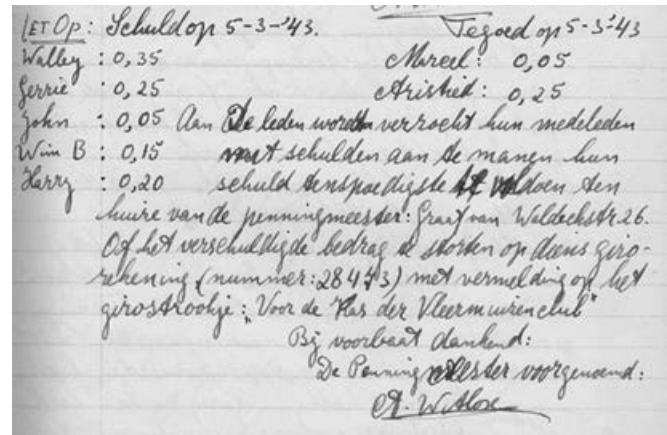 LET OP: Schuld op 5-3-'43. Tegoed op 5-3-'43
Walley : 0,35 Marcel : 0,05
Gerrie : 0,25 Aristied : 0,25
John : 0,05 Aan De leden worden verzocht hun medeleden
Wim B : 0,15 met schulden aan te manen hun
Harry : 0,20 schuld tenspoedigste te voldoen ten
huize van de penningmeester: Graaf van Waldeckstr. 26.
Of het verschuldigde bedrag te storten op diens giro-
rekening (nummer: 28473) met vermelding op het
girostrookje: „Voor de Kas der Vleermuizenclub"
Bij voorbaat dankend:
De Penningmeester voorgenoemd:
A. W.